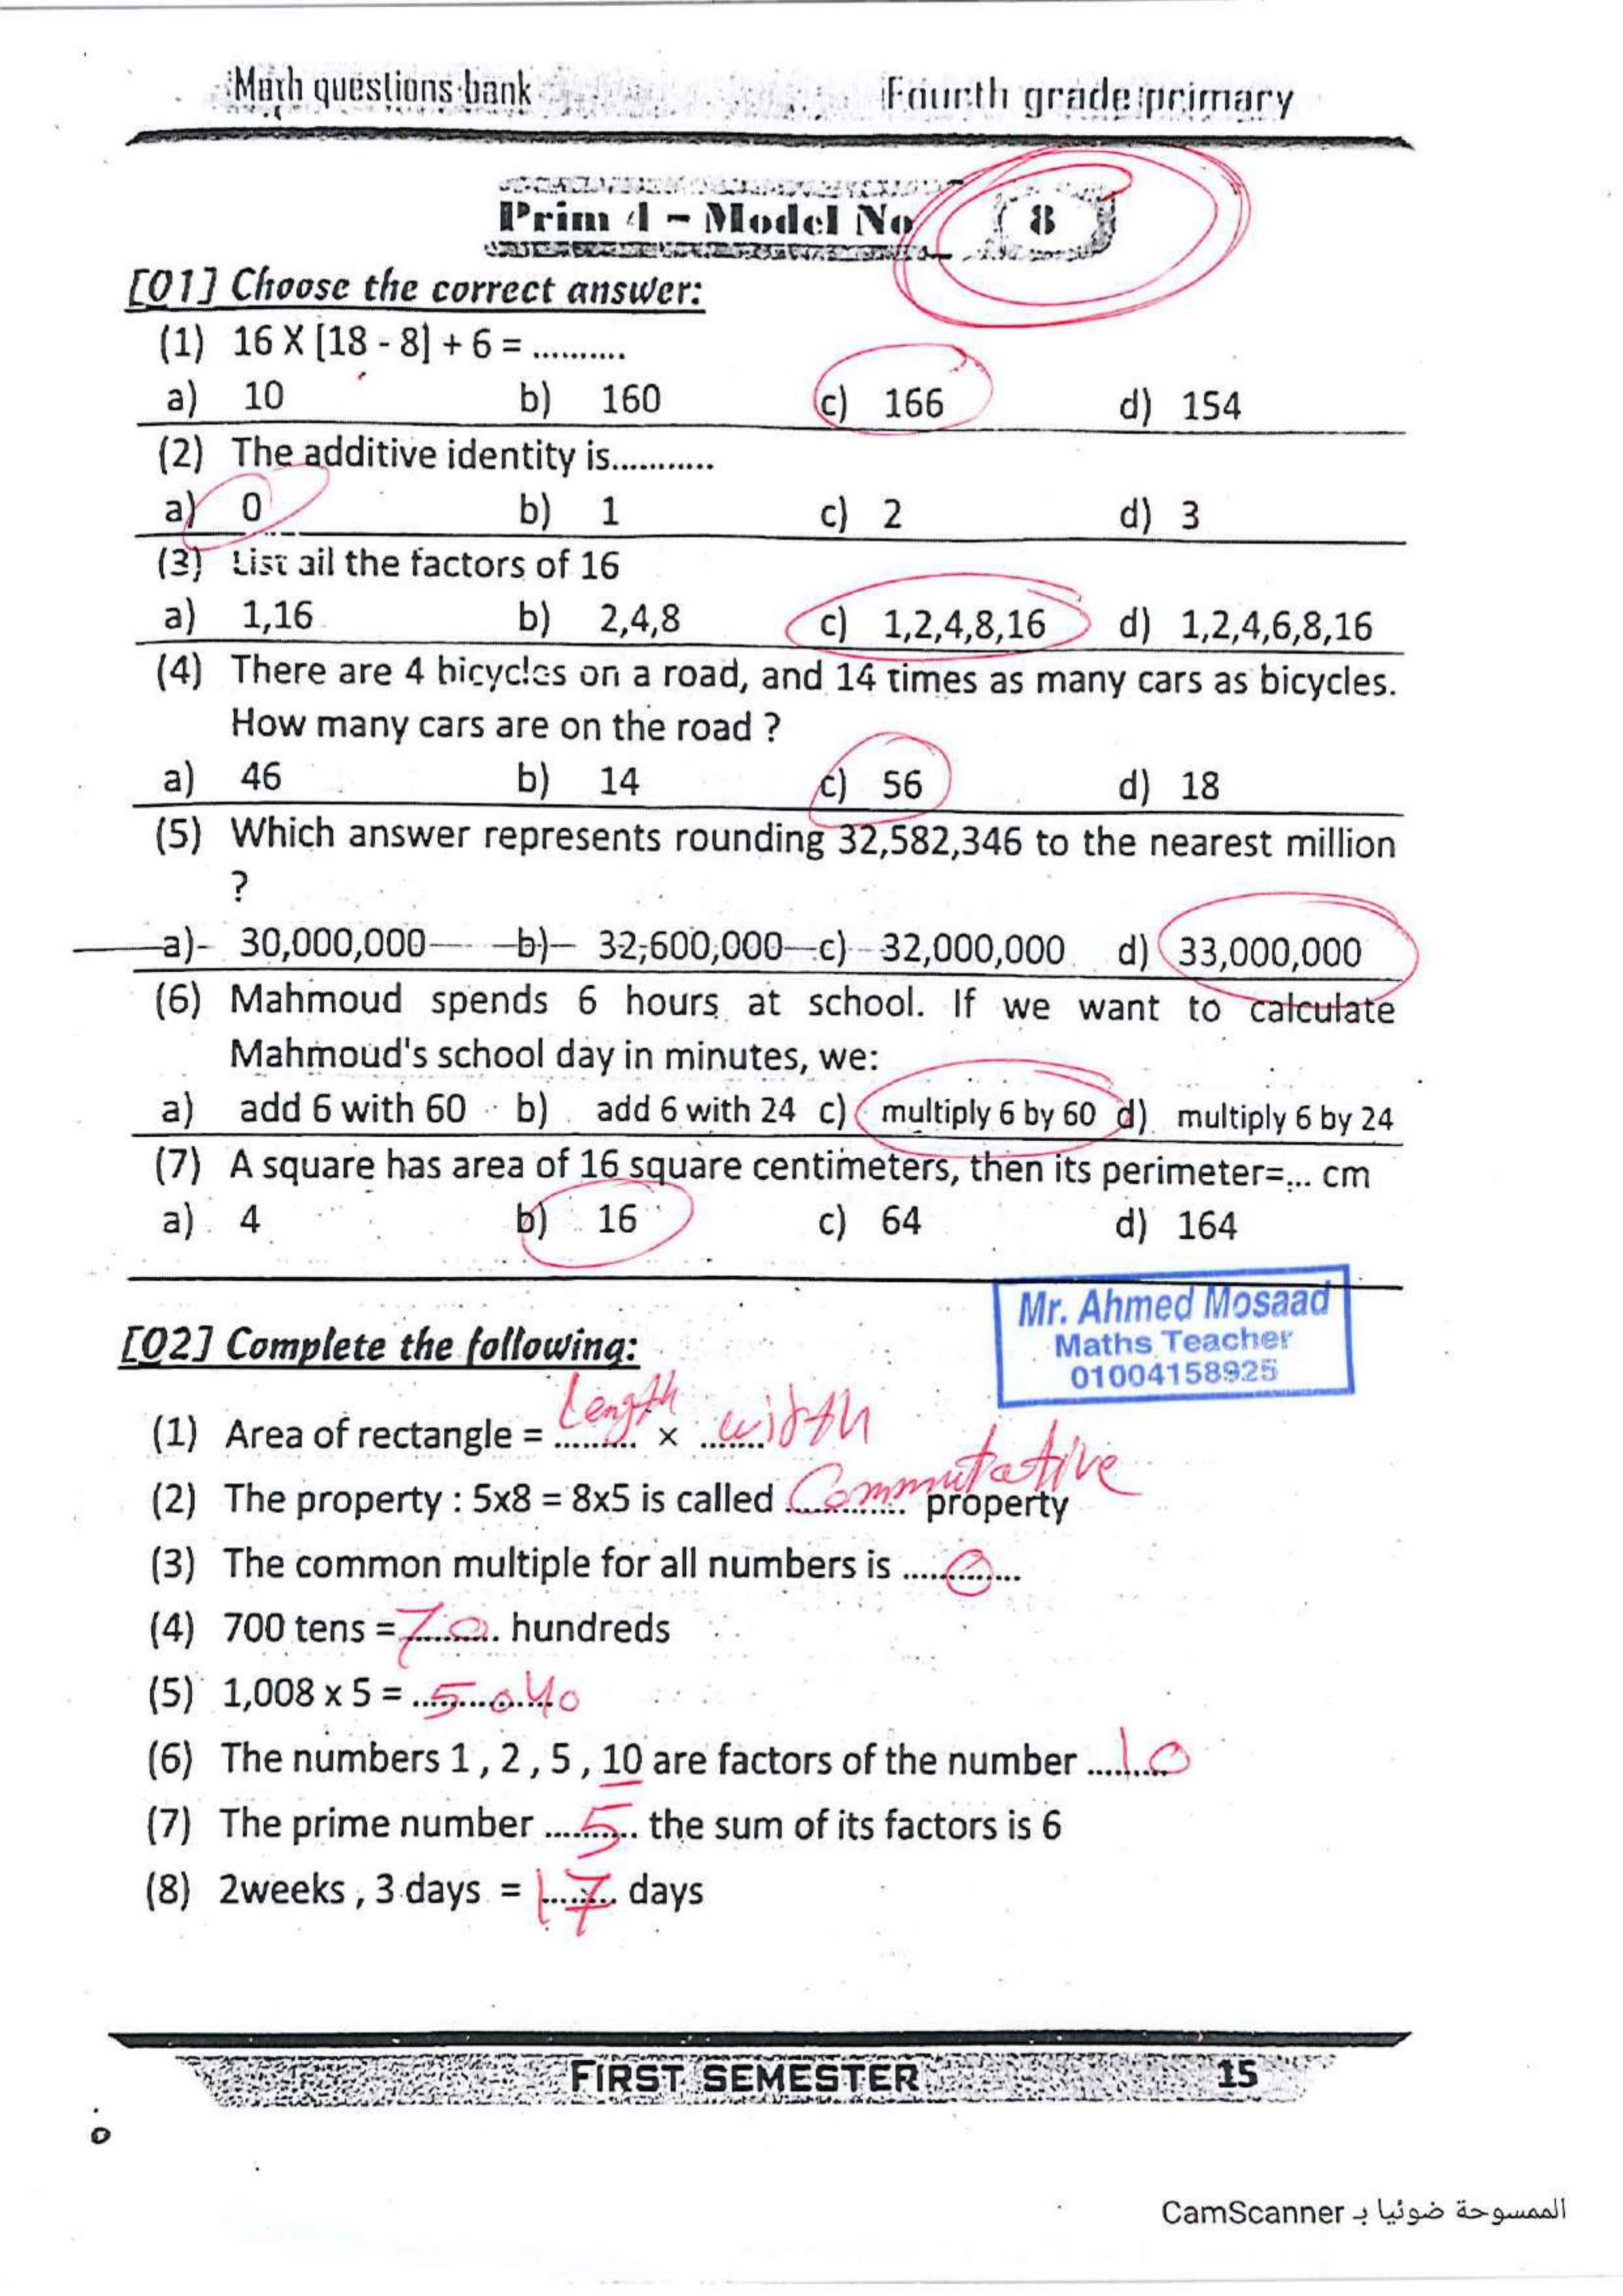 Math questions bank Fourth grade primary
Prim 4 - Model No 8
[Q1] Choose the correct answer:
(1) 16 X [18 - 8] + 6 = ..........
a) 10 b) 160 c) 166 d) 154
(2) The additive identity is...........
a) 0 b) 1 c) 2 d) 3
(3) List all the factors of 16
a) 1,16 b) 2,4,8 c) 1,2,4,8,16 d) 1,2,4,6,8,16
(4) There are 4 bicycles on a road, and 14 times as many cars as bicycles.
How many cars are on the road ?
a) 46 b) 14 c) 56 d) 18
(5) Which answer represents rounding 32,582,346 to the nearest million
?
a) 30,000,000 b) 32,600,000 c) 32,000,000 d) 33,000,000
(6) Mahmoud spends 6 hours at school. If we want to calculate
Mahmoud's school day in minutes, we:
a) add 6 with 60 b) add 6 with 24 c) multiply 6 by 60 d) multiply 6 by 24
(7) A square has area of 16 square centimeters, then its perimeter=... cm
a) 4 b) 16 c) 64 d) 164
Mr. Ahmed Mosaad
Maths Teacher
01004158925
[Q2] Complete the following:
(1) Area of rectangle = Length × width
(2) The property : 5x8 = 8x5 is called Commutative property
(3) The common multiple for all numbers is 0
(4) 700 tens = 70 hundreds
(5) 1,008 x 5 = 5040
(6) The numbers 1 , 2 , 5 , 10 are factors of the number 10
(7) The prime number 5 the sum of its factors is 6
(8) 2weeks , 3 days = 17 days
FIRST SEMESTER 15
الممسوحة ضوئيا بـ CamScanner